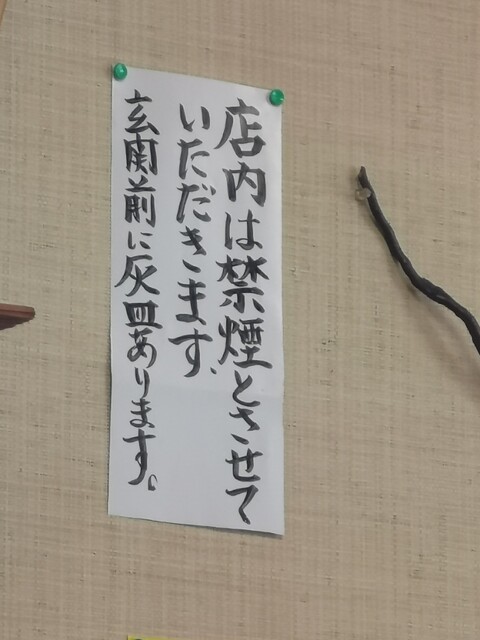 店内は禁煙とさせて
いただきます、
玄関前に灰皿あります。